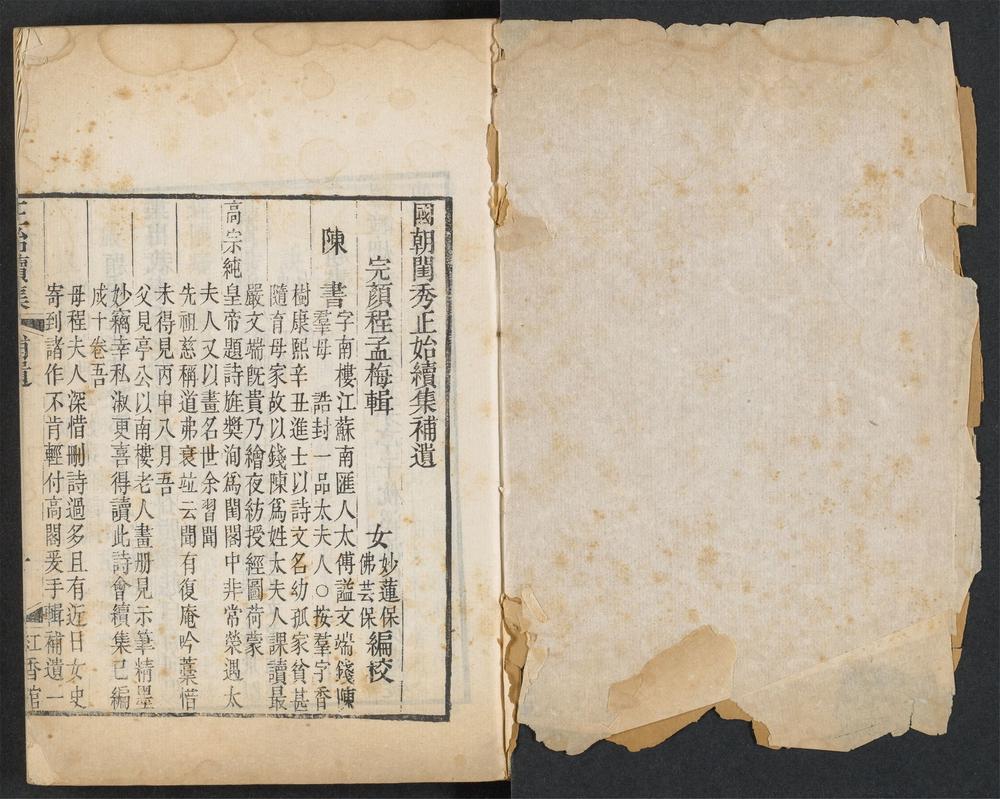 國朝閨秀正始續集補遺
完顏程孟梅輯
女妙蓮保佛芸保編校
陳書字南樓江蘇南匯人太傅諡文端錢陳
羣母 誥封一品太夫人○按羣字香
樹康熙辛丑進士以詩文名幼孤家貧甚
隨育母家故以錢陳爲姓太夫人課讀最
嚴文端旣貴乃繪夜紡授經圖荷蒙
高宗純皇帝題詩旌奬洵爲閨閤中非常榮遇太
夫人又以畫名世余習聞
先祖慈稱道弗衰竝云聞有復庵吟藁惜
未得見丙申八月吾
父見亭公以南樓老人畫册見示筆精墨
妙竊幸私淑更喜得讀此詩會續集已編
成十卷吾
母程夫人深惜刪詩過多且有近日女史
寄到諸作不肯輕付高閣爰手輯補遺一
正始續集 補遺 一 紅香館